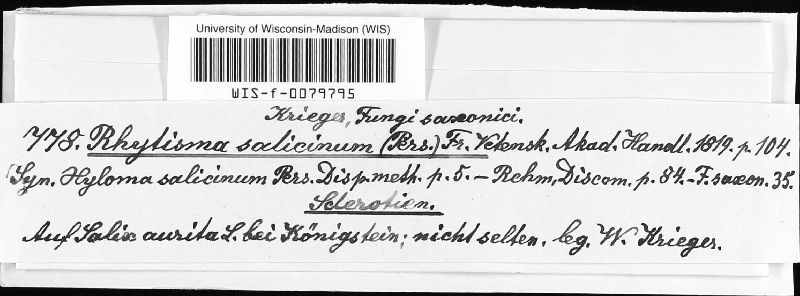 University of Wisconsin-Madison (WIS)
WIS-f-0079795
Krieger, Fungi saxonici.
778. Rhytisma salicinum (Pers.) Fr. Vetensk. Akad. Handl. 1819. p. 104.
(Syn. Xyloma salicinum Pers. Disp. meth. p. 5. – Rehm, Discom. p. 84. – F. saxon. 35.
Sclerotien.
Auf Salix aurita L. bei Königstein; nicht selten. leg. W. Krieger.